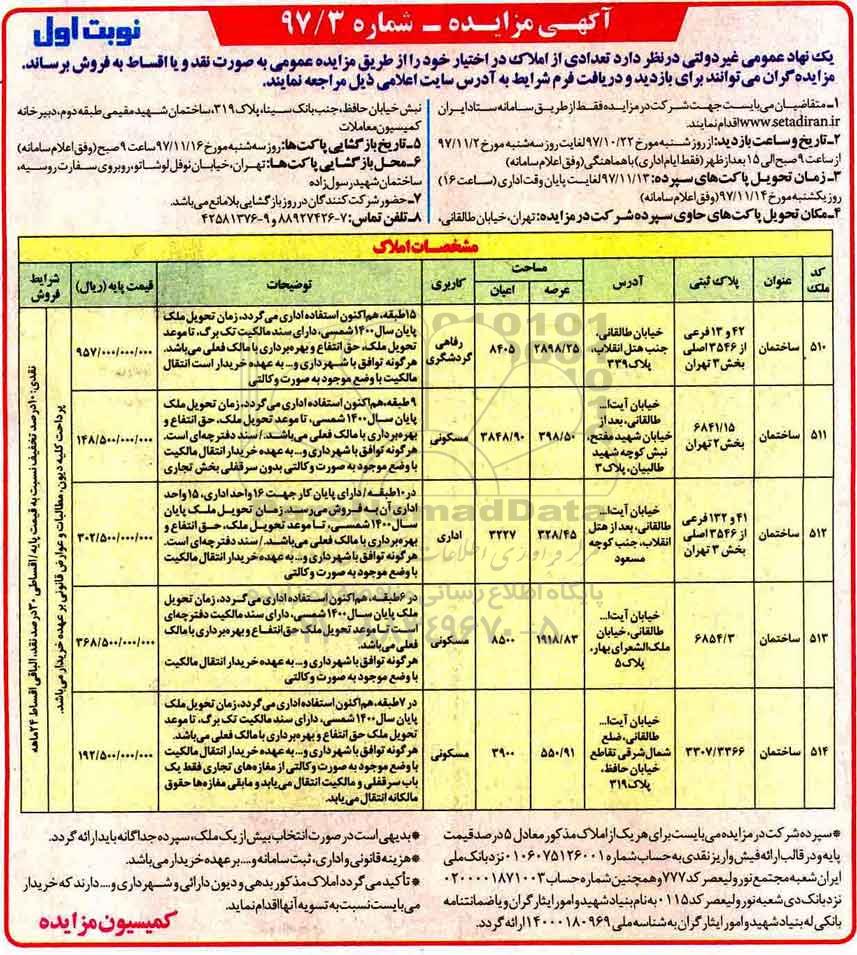 آگهی مزایده - شماره ۹۷/۳
نوبت اول
یک نهاد عمومی غیردولتی درنظر دارد تعدادی از املاک در اختیار خود را از طریق مزایده عمومی به صورت نقد و یا اقساط به فروش برساند.
مزایده‌گران می‌توانند برای بازدید و دریافت فرم شرایط به آدرس سایت اعلامی ذیل مراجعه نمایند.
۱ـ متقاضیان می‌بایست جهت شرکت در مزایده فقط از طریق سامانه ستاد ایران
www.setadiran.ir اقدام نمایند.
۲ـ تاریخ و ساعت بازدید: از روز شنبه مورخ ۹۷/۱۰/۲۲ لغایت روز سه‌شنبه مورخ ۹۷/۱۱/۲
از ساعت ۹ صبح الی ۱۵ بعدازظهر (فقط ایام اداری) با هماهنگی (وفق اعلام سامانه)
۳ـ زمان تحویل پاکت‌های سپرده: ۹۷/۱۱/۱۳ لغایت پایان وقت اداری (ساعت ۱۶)
روز یکشنبه مورخ ۹۷/۱۱/۱۴ (وفق اعلام سامانه)
۴ـ مکان تحویل پاکت‌های حاوی سپرده شرکت در مزایده: تهران، خیابان طالقانی،
نبش خیابان حافظ، جنب بانک سینا، پلاک ۳۱۹، ساختمان شهید مقیمی طبقه دوم، دبیرخانه
کمیسیون معاملات
۵ـ تاریخ بازگشایی پاکت‌ها: روز سه‌شنبه مورخ ۹۷/۱۱/۱۶ ساعت ۹ صبح (وفق اعلام سامانه)
۶ـ محل بازگشایی پاکت‌ها: تهران، خیابان نوفل لوشاتو، روبروی سفارت روسیه،
ساختمان شهید رسول‌زاده
۷ـ حضور شرکت‌کنندگان در روز بازگشایی بلامانع می‌باشد.
۸ـ تلفن تماس: ۷-۸۸۹۲۷۴۲۶ و ۹-۴۲۵۸۱۳۷۶
مشخصات املاک
کد ملک | عنوان | پلاک ثبتی | آدرس | مساحت عرصه | اعیان | کاربری | توضیحات | قیمت پایه (ریال) | شرایط فروش
۵۱۰ | ساختمان | ۴۲ و ۱۳ فرعی از ۳۵۴۶ اصلی بخش ۳ تهران | خیابان طالقانی، جنب هتل انقلاب، پلاک ۳۳۹ | ۲۸۹۸/۲۵ | ۸۴۰۵ | رفاهی گردشگری
۱۵ طبقه، هم‌اکنون استفاده اداری می‌گردد، زمان تحویل ملک
پایان سال ۱۴۰۰ شمسی، دارای سند مالکیت تک برگ، تا موعد
تحویل ملک، حق انتفاع و بهره‌برداری با مالک فعلی می‌باشد.
هرگونه توافق با شهرداری و... به عهده خریدار است انتقال
مالکیت با وضع موجود به صورت وکالتی
۹۵۷/۰۰۰/۰۰۰/۰۰۰
۵۱۱ | ساختمان | ۶۸۴۱/۱۵ بخش ۲ تهران | خیابان آیت‌ا... طالقانی، بعد از خیابان شهید مفتح، نبش کوچه شهید طالبیان، پلاک ۳ | ۳۹۸/۵۰ | ۳۸۴۸/۹۰ | مسکونی
۹ طبقه، هم‌اکنون استفاده اداری می‌گردد، زمان تحویل ملک
پایان سال ۱۴۰۰ شمسی، تا موعد تحویل ملک، حق انتفاع و
بهره‌برداری با مالک فعلی می‌باشد. / سند دفترچه‌ای است.
هرگونه توافق با شهرداری و... به عهده خریدار انتقال مالکیت
با وضع موجود به صورت وکالتی بدون سرقفلی بخش تجاری
۱۴۸/۵۰۰/۰۰۰/۰۰۰
۵۱۲ | ساختمان | ۴۱ و ۱۳۲ فرعی از ۳۵۴۶ اصلی بخش ۳ تهران | خیابان آیت‌ا... طالقانی، بعد از هتل انقلاب، جنب کوچه مسعود | ۳۲۸/۴۵ | ۳۲۲۷ | اداری
در ۱۰ طبقه / دارای پایان کار جهت ۱۶ واحد اداری، ۱۵ واحد
اداری آن به فروش می‌رسد. زمان تحویل ملک پایان
سال ۱۴۰۰ شمسی، تا موعد تحویل ملک، حق انتفاع و
بهره‌برداری با مالک فعلی می‌باشد. / سند دفترچه‌ای است.
هرگونه توافق با شهرداری و... به عهده خریدار انتقال مالکیت
با وضع موجود به صورت وکالتی
۳۰۲/۵۰۰/۰۰۰/۰۰۰
۵۱۳ | ساختمان | ۶۸۵۴/۳ | خیابان آیت‌ا... طالقانی، خیابان ملک‌الشعرای بهار، پلاک ۵ | ۱۹۱۸/۸۳ | ۸۵۰۰ | مسکونی
در ۶ طبقه، هم‌اکنون استفاده اداری می‌گردد، زمان تحویل
ملک پایان سال ۱۴۰۰ شمسی، دارای سند مالکیت دفترچه‌ای
است تا موعد تحویل ملک حق انتفاع و بهره‌برداری با مالک
فعلی می‌باشد.
هرگونه توافق با شهرداری و... به عهده خریدار انتقال مالکیت
با وضع موجود به صورت وکالتی
۳۶۸/۵۰۰/۰۰۰/۰۰۰
۵۱۴ | ساختمان | ۳۳۰۷/۳۳۶۶ | خیابان آیت‌ا... طالقانی، ضلع شمال‌شرقی تقاطع خیابان حافظ، پلاک ۳۱۹ | ۵۵۰/۹۱ | ۳۹۰۰ | مسکونی
در ۷ طبقه، هم‌اکنون استفاده اداری می‌گردد، زمان تحویل ملک
پایان سال ۱۴۰۰ شمسی، دارای سند مالکیت تک برگ، تا موعد
تحویل ملک حق انتفاع و بهره‌برداری با مالک فعلی می‌باشد.
هرگونه توافق با شهرداری و... به عهده خریدار انتقال مالکیت
با وضع موجود به صورت وکالتی از مغازه‌های تجاری فقط یک
باب سرقفلی و مالکیت انتقال می‌یابد و مابقی مغازه‌ها حقوق
مالکانه انتقال می‌یابد.
۱۹۲/۵۰۰/۰۰۰/۰۰۰
نقدی: ۱۰ درصد تخفیف نسبت به قیمت پایه / اقساطی ۳۰ درصد نقد، الباقی اقساط ۲۴ ماهه
پرداخت کلیه دیون، مطالبات و عوارض قانونی بر عهده خریدار می‌باشد.
* سپرده شرکت در مزایده می‌بایست برای هر یک از املاک مذکور معادل ۵ درصد قیمت
پایه و در قالب ارائه فیش واریز نقدی به حساب شماره ۰۱۰۶۰۷۵۱۲۶۰۰۱ نزد بانک ملی
ایران شعبه مجتمع نور ولیعصر کد ۷۷۷ و همچنین شماره حساب ۰۲۰۰۰۰۱۸۷۱۰۰۳
نزد بانک دی شعبه نور ولیعصر کد ۰۱۱۵ به نام بنیاد شهید و امور ایثارگران و یا ضمانتنامه
بانکی له بنیاد شهید و امور ایثارگران به شناسه ملی ۱۴۰۰۰۱۸۰۹۶۹ ارائه گردد.
* بدیهی است در صورت انتخاب بیش از یک ملک، سپرده جداگانه باید ارائه گردد.
* هزینه قانونی و اداری، ثبت سامانه و.... بر عهده خریدار می‌باشد.
* تأکید می‌گردد املاک مذکور بدهی و دیون دارائی و شهرداری و.... دارند که خریدار
می‌بایست نسبت به تسویه آنها اقدام نماید.
کمیسیون مزایده